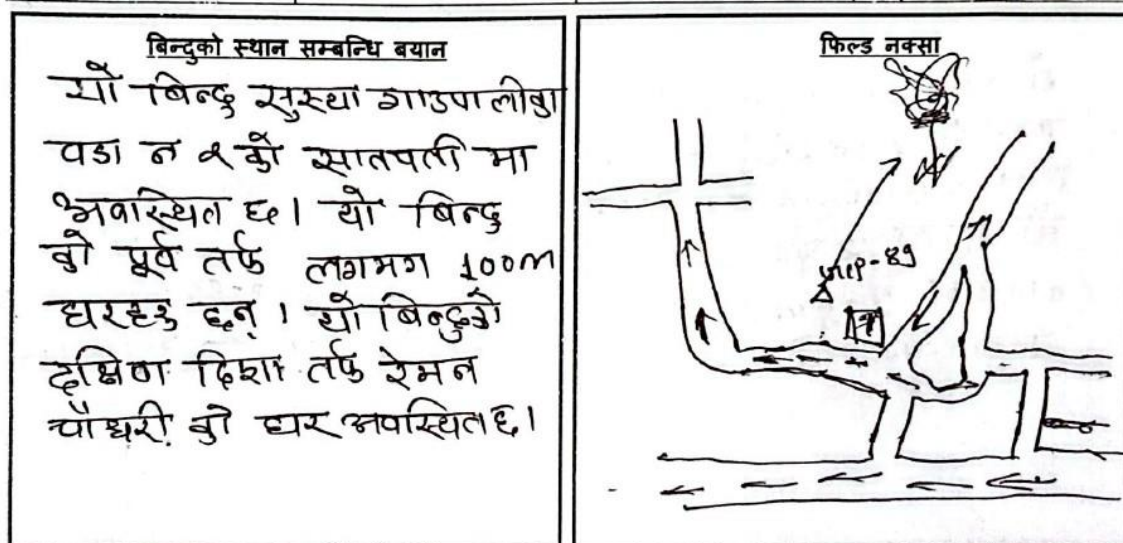 बिन्दुको स्थान सम्बन्धि बयान
यो बिन्दु सुस्था गाउपालीका
वडा न २ को सातपती मा
अवास्थित छ। यो बिन्दु
को पूर्व तर्फ लगभग 100m
घरहरु छन्। यो बिन्दुको
दक्षिण दिशा तर्फ रेमन
चौधरी को घर अवस्थित छ।
फिल्ड नक्सा